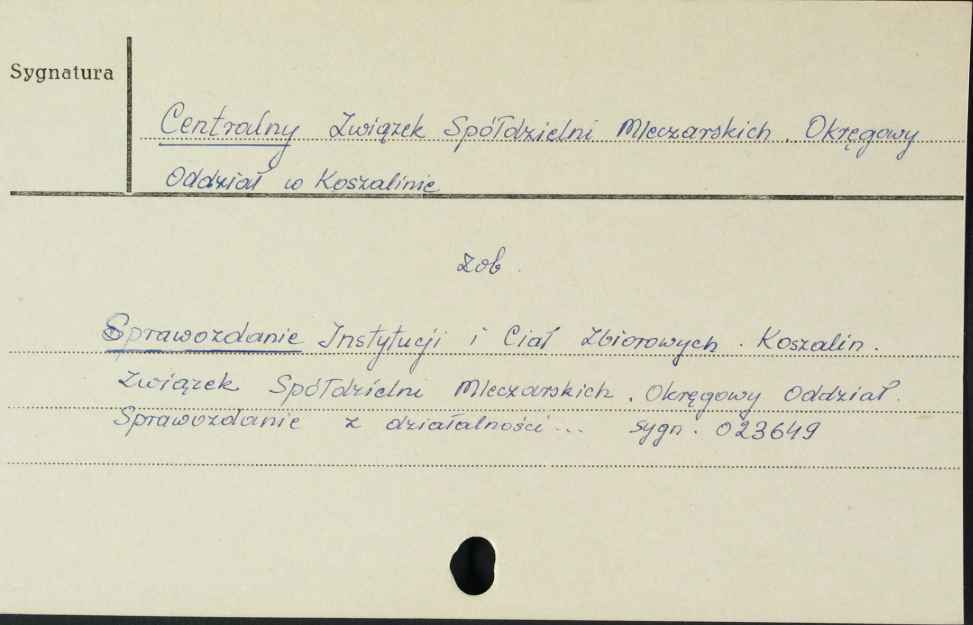 Sygnatura
Centralny Związek Spółdzielni Mleczarskich. Okręgowy
Oddział w Koszalinie
zob.
Sprawozdanie Instytucji i Ciał Zbiorowych. Koszalin.
Związek Spółdzielni Mleczarskich. Okręgowy Oddział.
Sprawozdanie z działalności... sygn. 023649